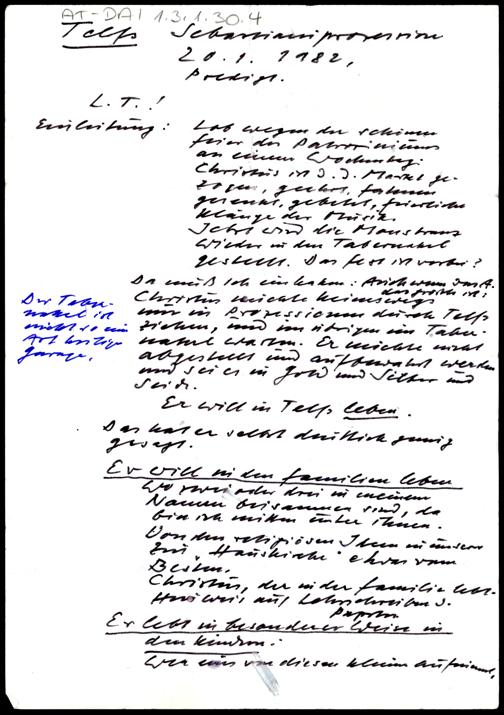 AT-DAI 1.3.1.30.4
Telfs Sebastianiprozession
20.1.1982,
Predigt.
L.T.!
Einleitung: Lob wegen der schönen
feier des Patroziniums
an einem Wochentag.
Christus ist d. d. Markt ge-
zogen, geehrt, fahnen
gesenkt, gebetet, feierliche
Klänge der Musik.
Jetzt wird die Monstranz
wieder in den Tabernakel
gestellt. Das fest ist vorbei?
Da muß ich einhaken:
Christus möchte keineswegs
nur in Prozessionen durch Telfs
ziehen, und im übrigen im Taber-
nakel warten. Er möchte nicht
abgestellt und aufbewahrt werden
und sei es in Gold und Silber und
Seide.
Der Taber-
nakel ist
nicht so eine
Art heilige
Garage.
Er will in Telfs leben.
Das hat er selbst deutlich genug
gesagt.
Er will in den familien leben
Wo zwei oder drei in meinem
Namen beisammen sind, da
bin ich mitten unter ihnen.
Von den religiösen Ideen in unserer
Zeit "Hauskirche" etwas vom
Besten.
Christus, der in der familie lebt.
Hinweis auf Lehrschreiben d.
Papstes
Er lebt in besonderer Weise in
den Kindern:
Wer eins von diesen kleinen aufnimmt,